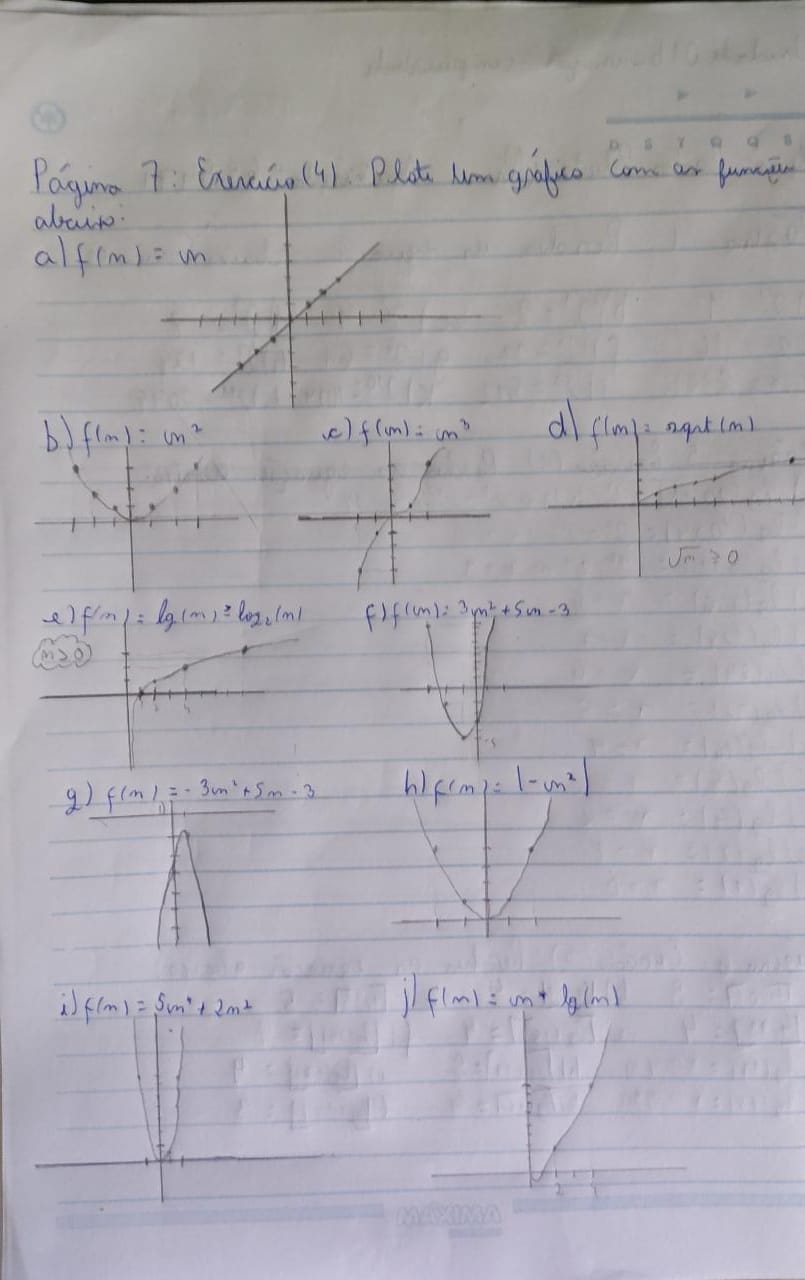 D S T Q Q S
Página 7: Exercício (4). Plote um gráfico com as funções
abaixo:
a) f(n) = n
b) f(n) = n²
c) f(n) = n³
d) f(n) = sqrt(n)
√n ≥ 0
e) f(n) = lg(n) = log₂(n)
n > 0
f) f(n) = 3n² + 5n - 3
-5
g) f(n) = - 3n² + 5n - 3
h) f(n) = |-n²|
i) f(n) = 5n⁴ + 2n²
j) f(n) = n + lg(n)
2
MÁXIMA